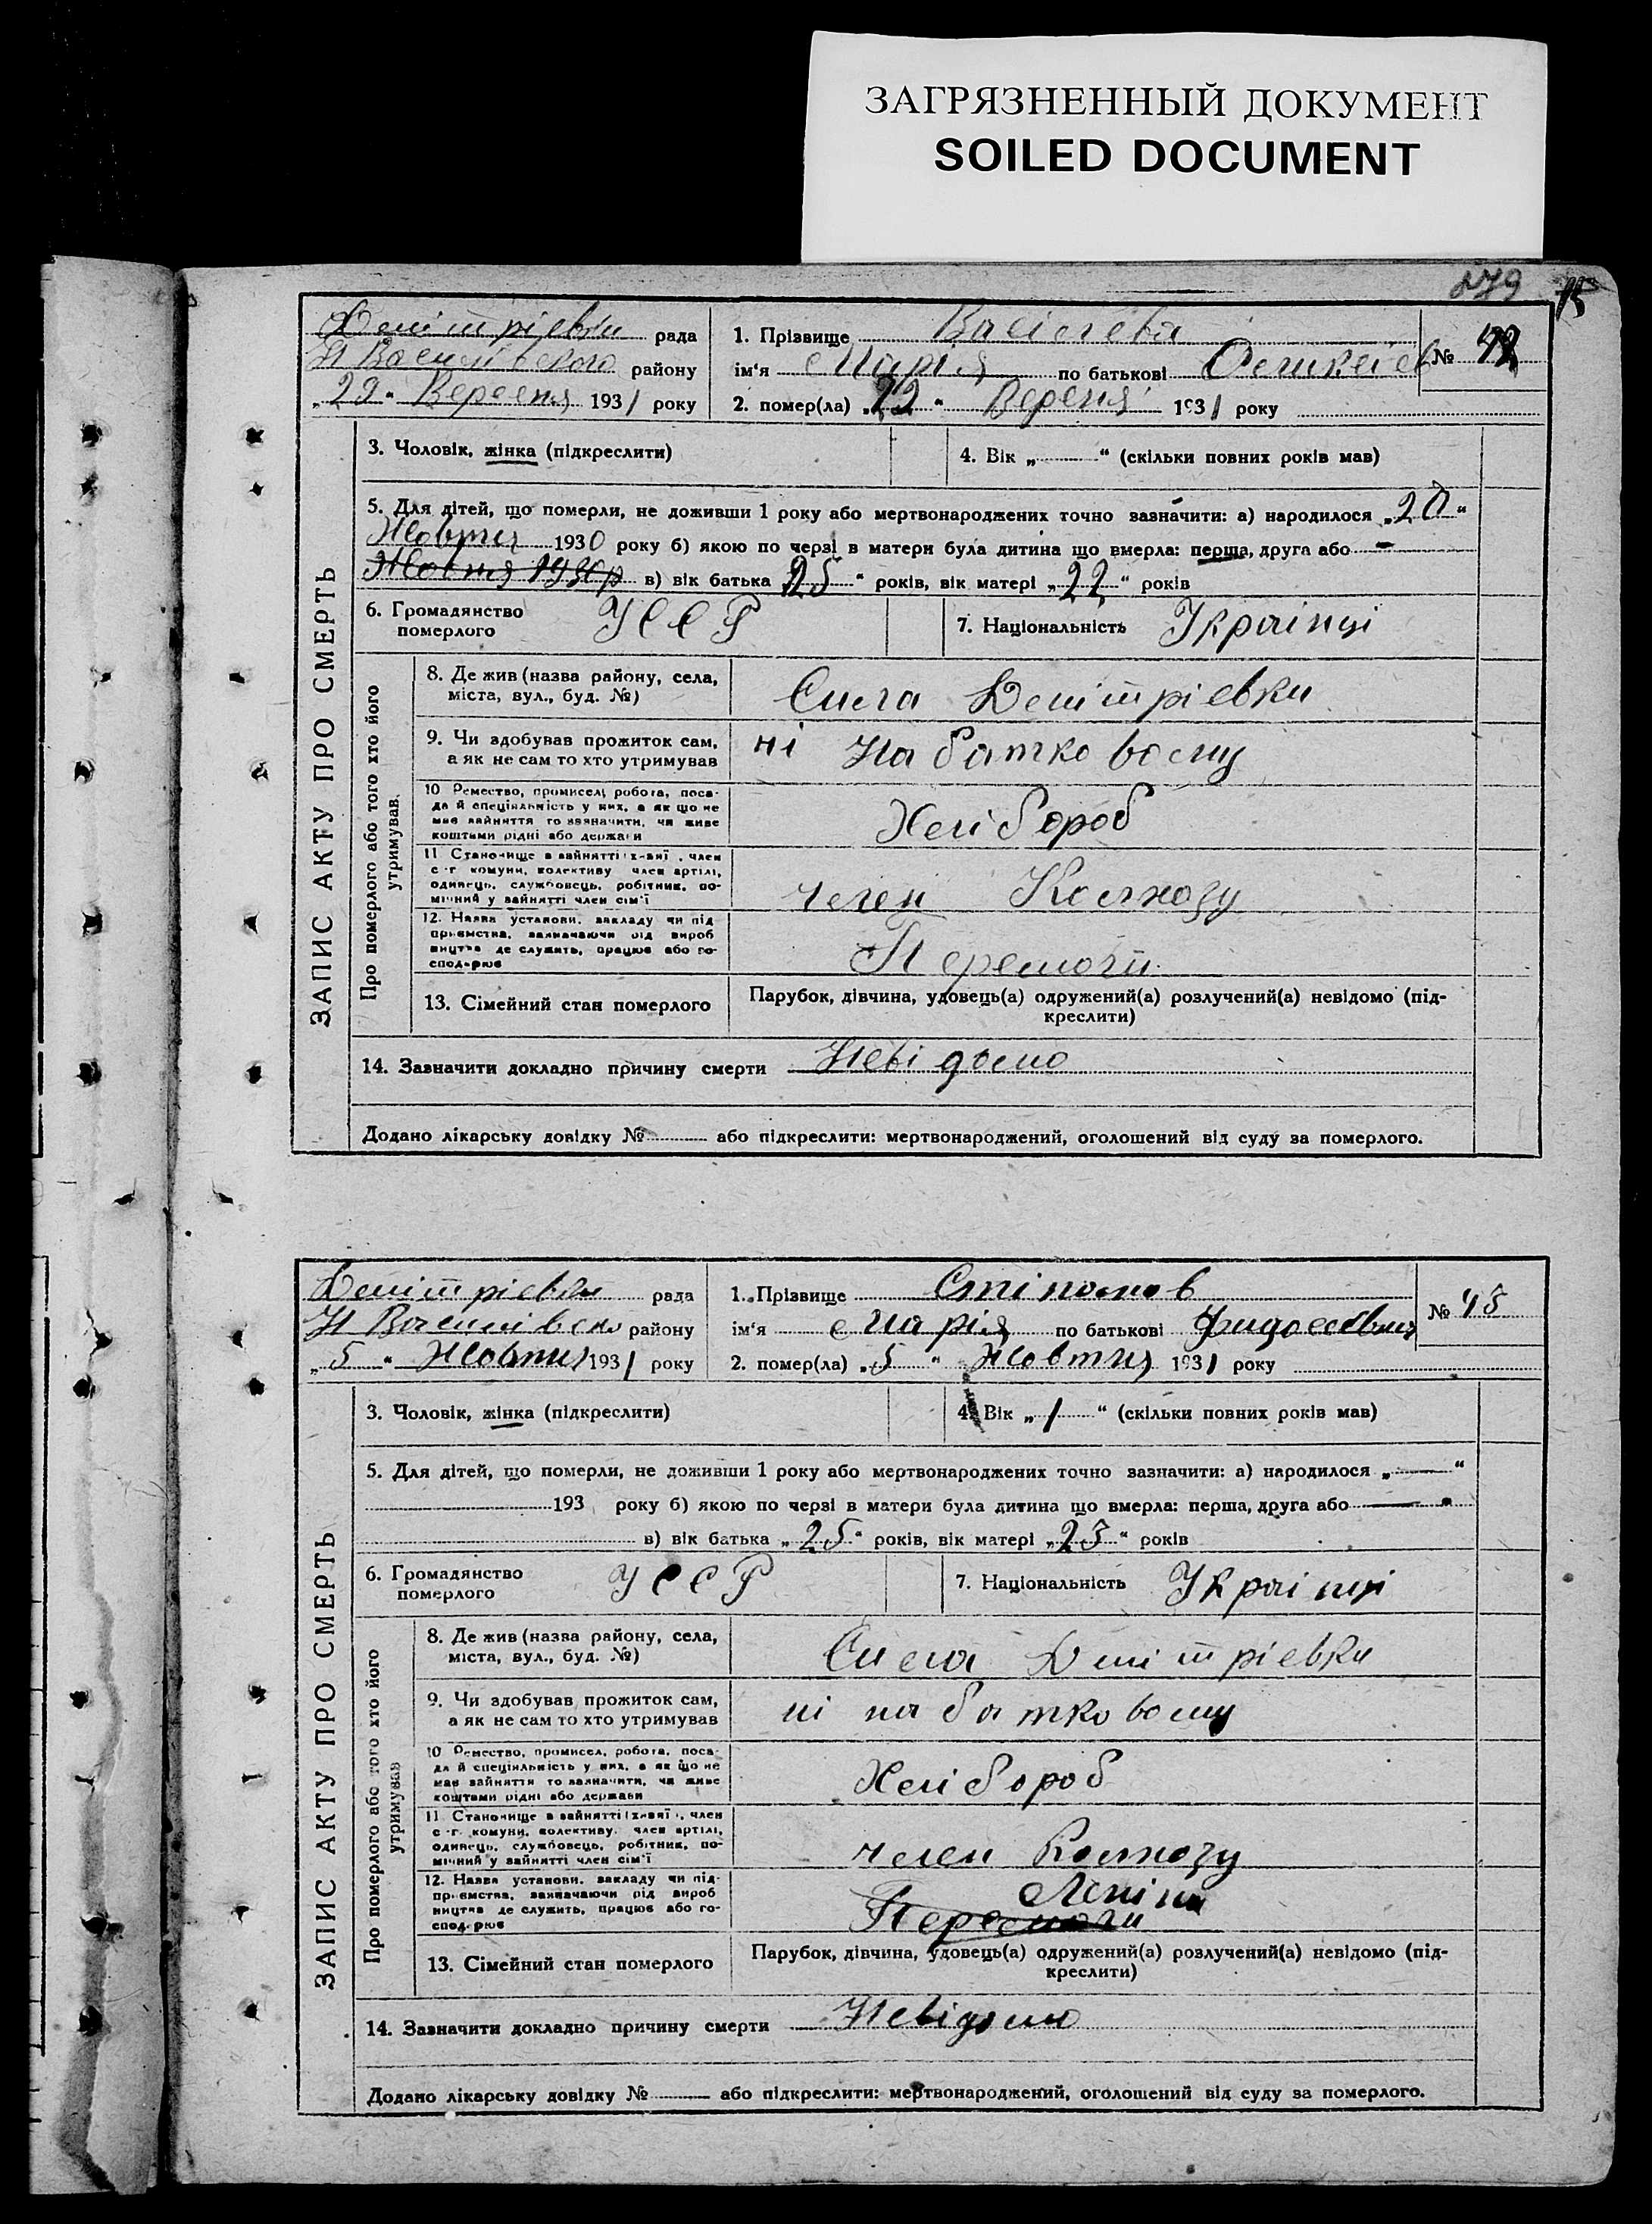 ЗАГРЯЗНЕННЫЙ ДОКУМЕНТ
SOILED DOCUMENT
279 75
Демітрієвки рада
Н Василівского району
„29“ Вересня 1931 року
1. Прізвище Васілєва № 42
ім‘я Марія по батькові
2. помер(ла) „22“ Вересня 1931 року
ЗАПИС АКТУ ПРО СМЕРТЬ
3. Чоловік, жінка (підкреслити)
4. Вік „ “ (скільки повних років мав)
5. Для дітей, що померли, не доживши 1 року або мертвонароджених точно зазначити: а) народилося „20“
Жовтня 1930 року б) якою по черзі в матери була дитина що вмерла: перша, друга або -
Жовтня 1930р в) вік батька „25“ років, вік матері „22“ років
6. Громадянство
померлого
УССР
7. Національність Українці
Про померлого або того хто його
утримував.
8. Де жив (назва району, села,
міста, вул., буд. №)
Села Демітрієвки
9. Чи здобував прожиток сам,
а як не сам то хто утримував
ні На батковому
10 Ремество, промисел, робота, поса-
да й спеціяльність у них, а як що не
має зайняття то зазначити, чи живе
коштами рідні або держави
Хлібороб
11 Становище в зайнятті (хазяї, член
с-г комуни, колективу член артілі,
одинець, службовець, робітник, по-
мічний у зайнятті член сім‘ї
член Колхозу
12. Назва установи, закладу чи під
приємства, зазначаючи рід вироб
ництва де служить, працює або го-
сподарює
Перемоги
13. Сімейний стан померлого
Парубок, дівчина, удовець(а) одружений(а) розлучений(а) невідомо (під-
креслити)
14. Зазначити докладно причину смерти Невідомо
Додано лікарську довідку № або підкреслити: мертвонароджений, оголошений від суду за померлого.
Демітрієвки рада
Н Василівско району
„5“ Жовтня 1931 року
1. Прізвище № 43
ім‘я Марія по батькові
2. помер(ла) „5“ Жовтня 1931 року
ЗАПИС АКТУ ПРО СМЕРТЬ
3. Чоловік, жінка (підкреслити)
4. Вік „1“ (скільки повних років мав)
5. Для дітей, що померли, не доживши 1 року або мертвонароджених точно зазначити: а) народилося „—“
193 року б) якою по черзі в матери була дитина що вмерла: перша, друга або —
в) вік батька „25“ років, вік матері „23“ років
6. Громадянство
померлого
УССР
7. Національність Українці
Про померлого або того хто його
утримував
8. Де жив (назва району, села,
міста, вул., буд. №)
Села Демітрієвки
9. Чи здобував прожиток сам,
а як не сам то хто утримував
ні на батковому
10 Ремество, промисел, робота, поса-
да й спеціяльність у них, а як що не
має зайняття то зазначити, чи живе
коштами рідні або держави
Хлібороб
11 Становище в зайнятті (хазяї, член
с-г комуни, колективу, член артілі,
одинець, службовець, робітник, по-
мічний у зайнятті член сім‘ї
член Колхозу
12. Назва установи, закладу чи під-
приємства, зазначаючи рід вироб
ництва де служить, працює або го-
сподарює
Леніна
Перемоги
13. Сімейний стан померлого
Парубок, дівчина, удовець(а) одружений(а) розлучений(а) невідомо (під-
креслити)
14. Зазначити докладно причину смерти Невідомо
Додано лікарську довідку № або підкреслити: мертвонароджений, оголошений від суду за померлого.